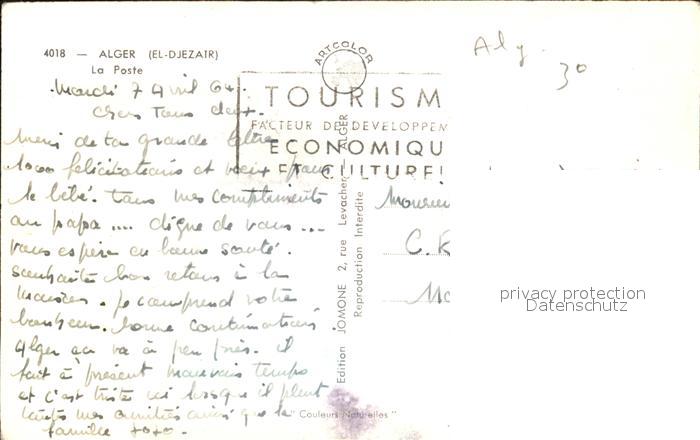 4018 — ALGER (EL-DJEZAIR)
La Poste
Mardi 7 Avril 64.
chers Tous deux.
Merci de ta grande lettre
1000 félicitations et voeux pour
le bébé. tous mes compliments
au papa .... digne de vous ...
vous espère en bonne santé.
souhaite bon retour à la
maison. je comprend votre
bonheur. bonne continuation.
Alger ça va à peu près. il
fait à présent mauvais temps
et c'est triste ici lorsque il pleut
toutes mes amitiés ainsi que la
famille
ARTCOLOR
TOURISM
FACTEUR DE DEVELOPPEM
ECONOMIQU
ET CULTURE
Edition JOMONE 2, rue Levacher — ALGER
Reproduction Interdite
"Couleurs Naturelles"
Alg.
30
Monsieu
C.
Mo
privacy protection
Datenschutz